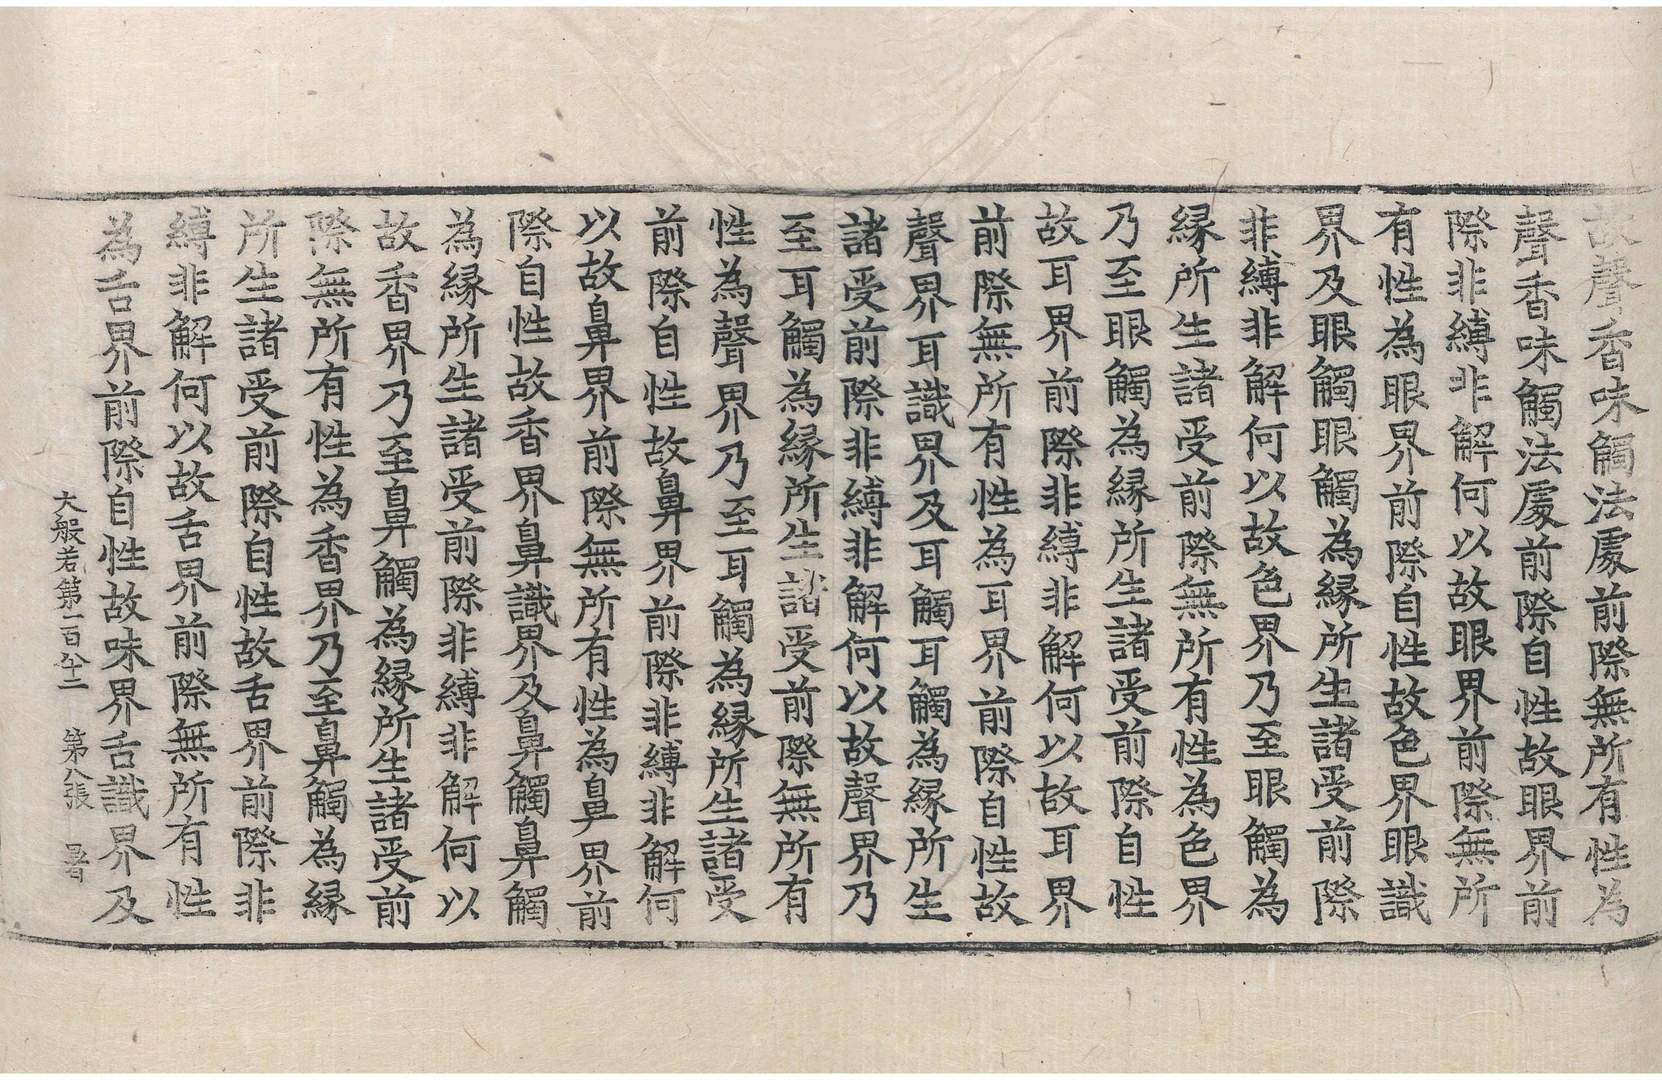 故聲香味觸法處前際無所有性為
聲香味觸法處前際自性故眼界前
際非縛非解何以故眼界前際無所
有性為眼界前際自性故色界眼識
界及眼觸眼觸為縁所生諸受前際
非縛非解何以故色界乃至眼觸為
縁所生諸受前際無所有性為色界
乃至眼觸為縁所生諸受前際自性
故耳界前際非縛非解何以故耳界
前際無所有性為耳界前際自性故
聲界耳識界及耳觸耳觸為縁所生
諸受前際非縛非解何以故聲界乃
至耳觸為縁所生諸受前際無所有
性為聲界乃至耳觸為縁所生諸受
前際自性故鼻界前際非縛非解何
以故鼻界前際無所有性為鼻界前
際自性故香界鼻識界及鼻觸鼻觸
為縁所生諸受前際非縛非解何以
故香界乃至鼻觸為縁所生諸受前
際無所有性為香界乃至鼻觸為縁
所生諸受前際自性故舌界前際非
縛非解何以故舌界前際無所有性
為舌界前際自性故味界舌識界及
大般若第一百八十二 第八張 暑